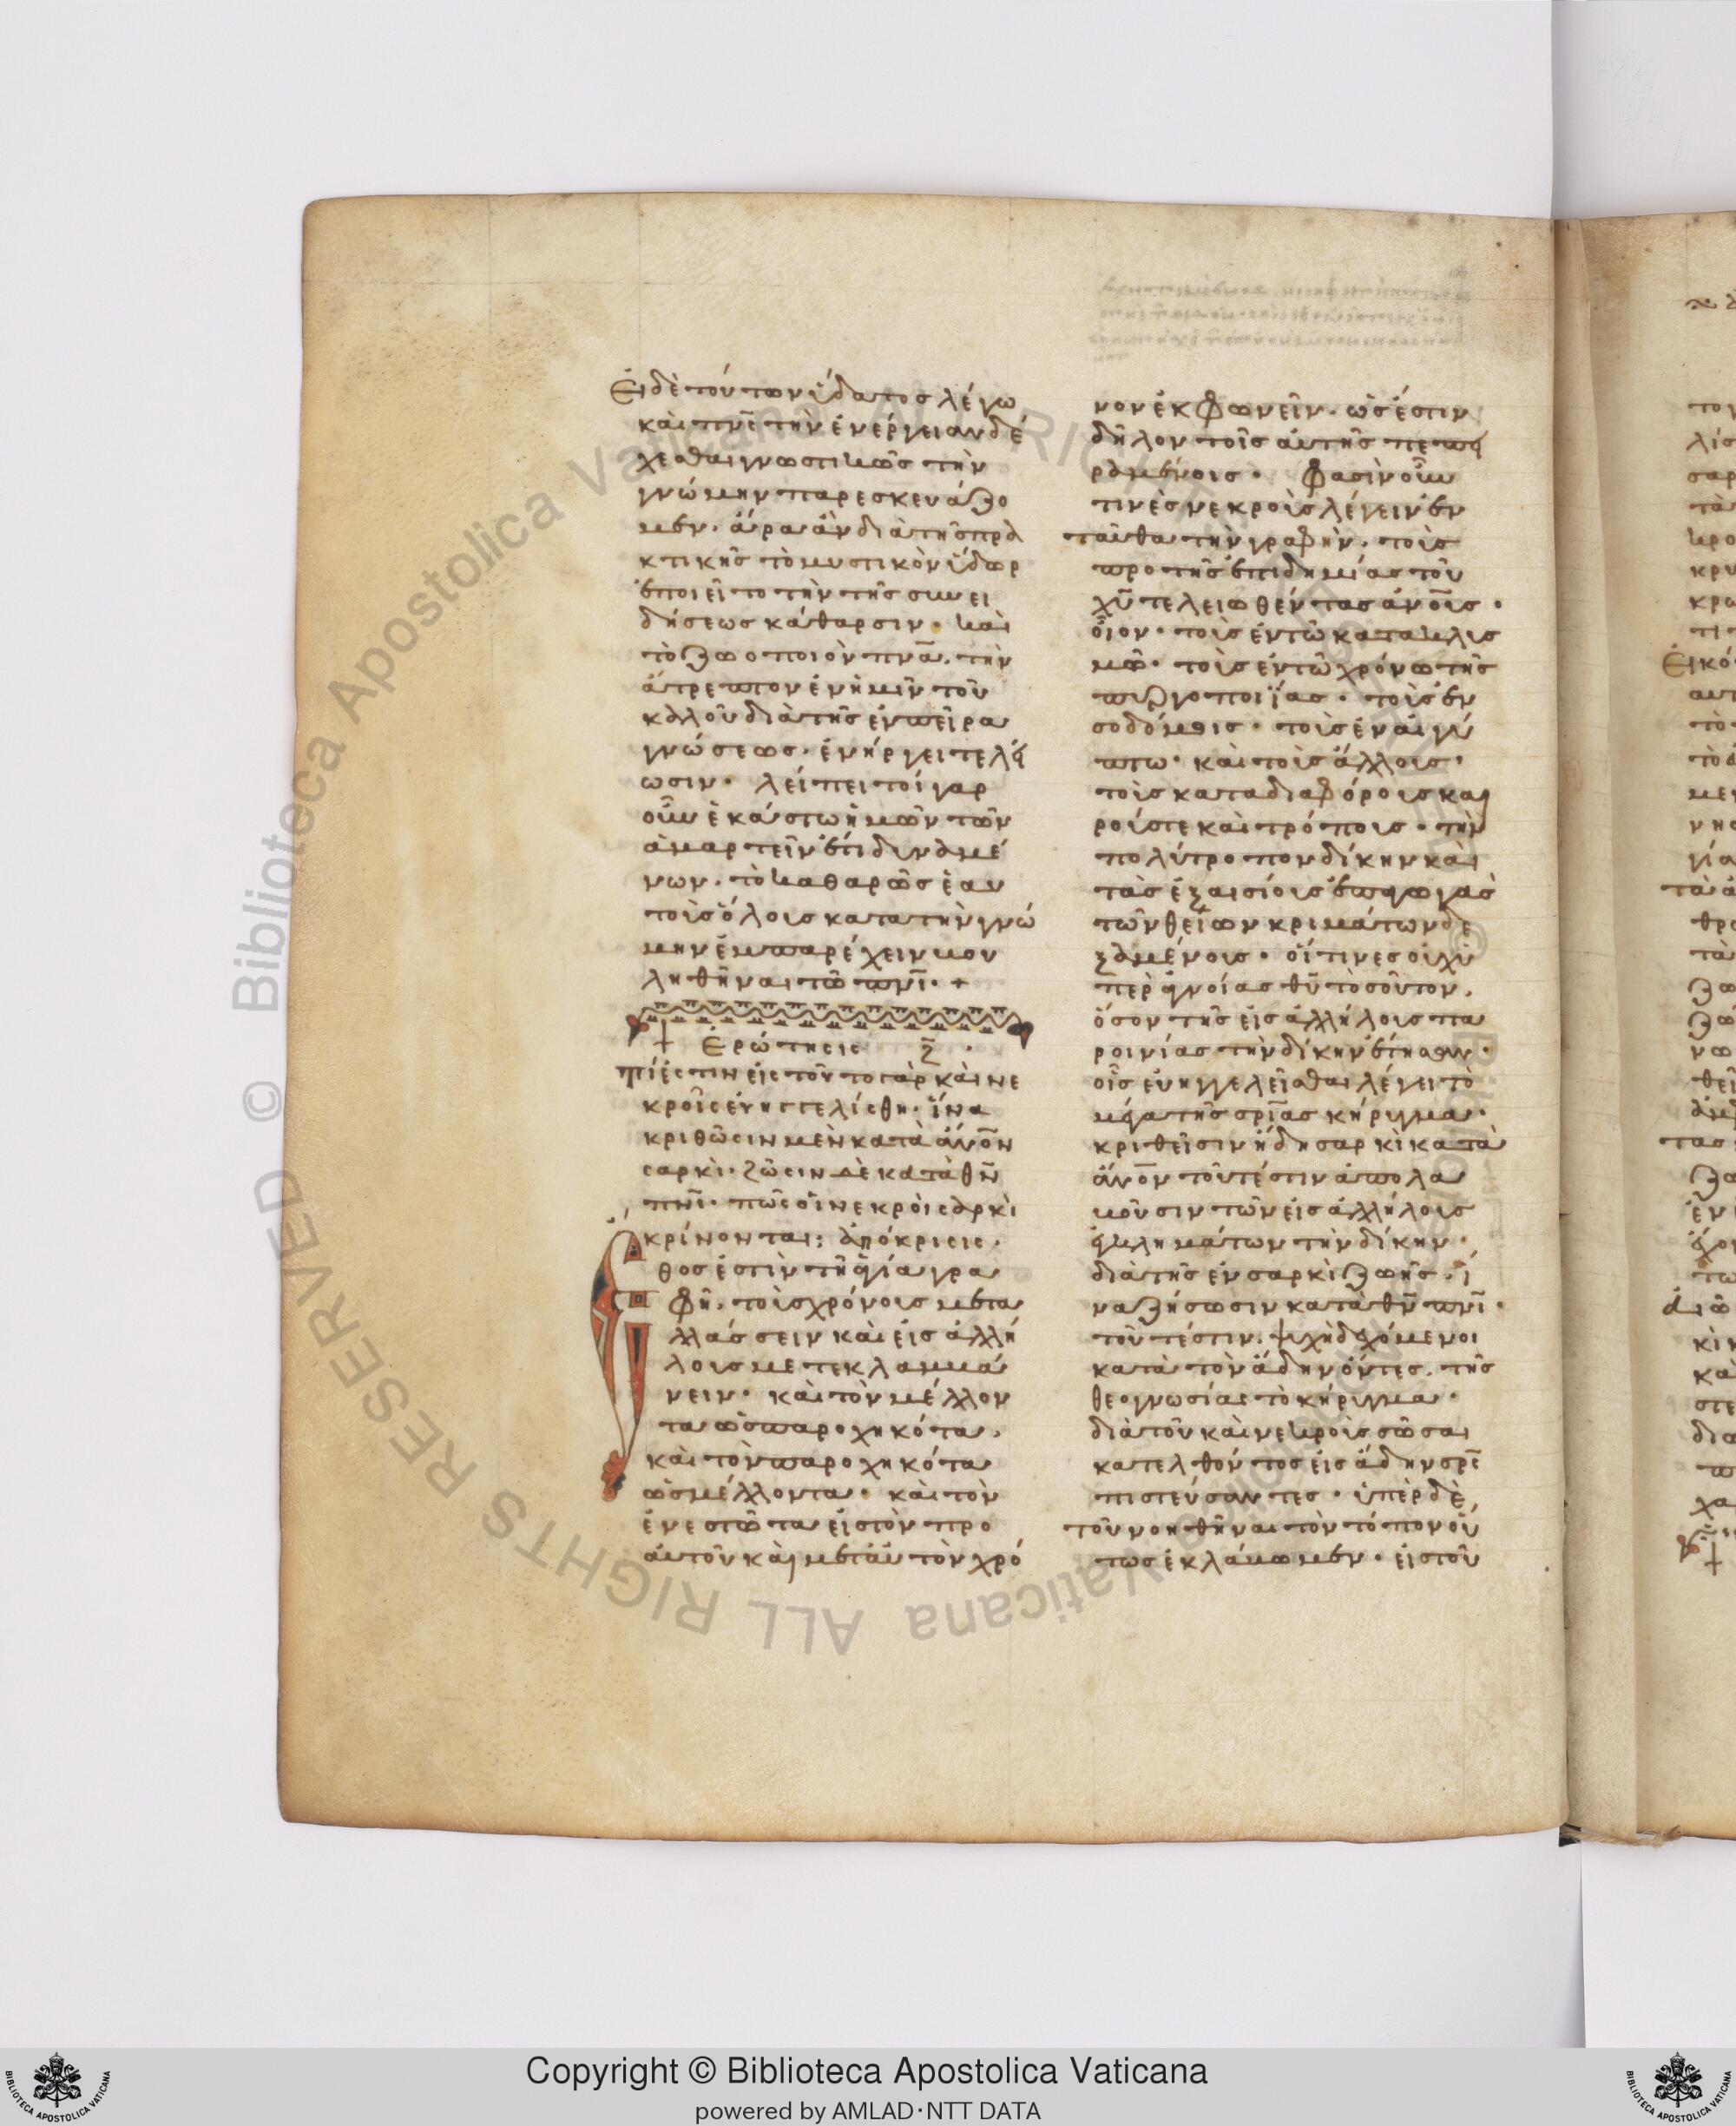 Εἰ δὲ τούτων ὕδατος λέγω
καὶ πνς τὴν ἐνέργειαν δέ
χεσθαι γνωστικῶς τὴν
γνώμην παρεσκευάζο
μεν· ἄρα ἂν διὰ τῆς πρα
κτικῆς τὸ μυστικὸν ὕδωρ
ἐποιεῖτο τὴν τῆς συνει
δήσεως κάθαρσιν· καὶ
τὸ ζωοποιὸν πνα, τὴν
ἄτρεπτον ἐν ἡμῖν τοῦ
καλοῦ διὰ τῆς ἐν πεῖρα
γνώσεως· ἐνήργει τελεί
ωσιν· λείπει τοί γαρ
οῦν ἑκάστω ἡμῶν τῶν
ἁμαρτεῖν ἔτι δυναμέ
νων· τὸ καθαρῶς ἑαυ
τοὺς ὅλους κατὰ τὴν γνώ
μην ἐμπαρέχειν βου
ληθῆναι τῶ πνι· +
+ Ἐρώτησις ζ ·
τί ἐστιν εἰς τοῦτο γὰρ καὶ νε
κροῖς εὐηγγελίσθη· ἵνα
κριθῶσιν μὲν κατὰ ἀνον
σαρκὶ· ζῶσιν δὲ κατὰ θν
πνι· πῶς οἱ νεκροὶ σαρκὶ
κρίνονται; ἀπόκρισις·
Ἔθος ἐστὶν τῆ ἁγία γρα
φῆ, τοὺς χρόνους μετα
λλάσσειν καὶ εἰς ἀλλή
λους μετεκλαμβά
νειν· καὶ τὸν μέλλον
τα ὡς παροχηκότα,
καὶ τὸν παροχηκότα
ὡς μέλλοντα· καὶ τὸν
ἐνεστῶτα εἰς τὸν προ
αὐτοῦ καὶ μετ' αὐτὸν χρό
νον ἐκφωνεῖν· ὡς ἔστιν
δῆλον τοῖς αὐτῆς πεπει
ραμένοις· φασὶν οὖν
τινὲς νεκροὺς λέγειν ἐν
ταῦθα τὴν γραφὴν· τοὺς
προ τῆς ἐπιδημίας τοῦ
χυ τελειωθέντας ἀνους·
οἷον· τοὺς ἐν τῶ κατακλυσ
μῶ· τοὺς ἐν τῶ χρόνω τῆς
πυργοποιΐας· τοὺς ἐν
σοδόμοις· τοὺς ἐν αἰγύ
πτω· καὶ τοὺς ἄλλους·
τοὺς κατὰ διαφόρους και
ροὺς τε καὶ τρόπους· τὴν
πολύτροπον δίκην καὶ
τὰς ἐξαισίους ἐπαγωγὰς
τῶν θείων κριμάτων δε
ξαμένους· οἵ τινες οὐχ ὑ
περ ἀγνοίας θυ τοσοῦτον,
ὅσον τῆς εἰς ἀλλήλους πα
ροινίας τὴν δίκην ἔτισαν·
οἷς εὐηγγελεῖσθαι λέγει τὸ
μέγα τῆς σριας κήρυγμα·
κριθεῖσιν ἤδη σαρκὶ κατὰ
ἀνον τοῦτέστιν ἀπολα
βοῦσιν τῶν εἰς ἀλλήλους
ἐγκλημάτων τὴν δίκην·
διὰ τῆς ἐν σαρκὶ ζωῆς· ἵ
να ζήσωσιν κατὰ θν πνι·
τοῦτέστιν, ψυχῆ δεχόμενοι
κατὰ τὸν ἅδην ὄντες, τῆς
θεογνωσίας τὸ κήρυγμα·
διὰ τοῦ καὶ νεκροὺς σῶσαι
κατελθόντος εἰς ἅδην σρς
πιστεύσαντες· ὑπὲρ δὲ
τοῦ νοηθῆναι τὸν τόπον οὕ
τως ἐκλάβωμεν· εἰς τοῦ
Copyright © Biblioteca Apostolica Vaticana
powered by AMLAD·NTT DATA